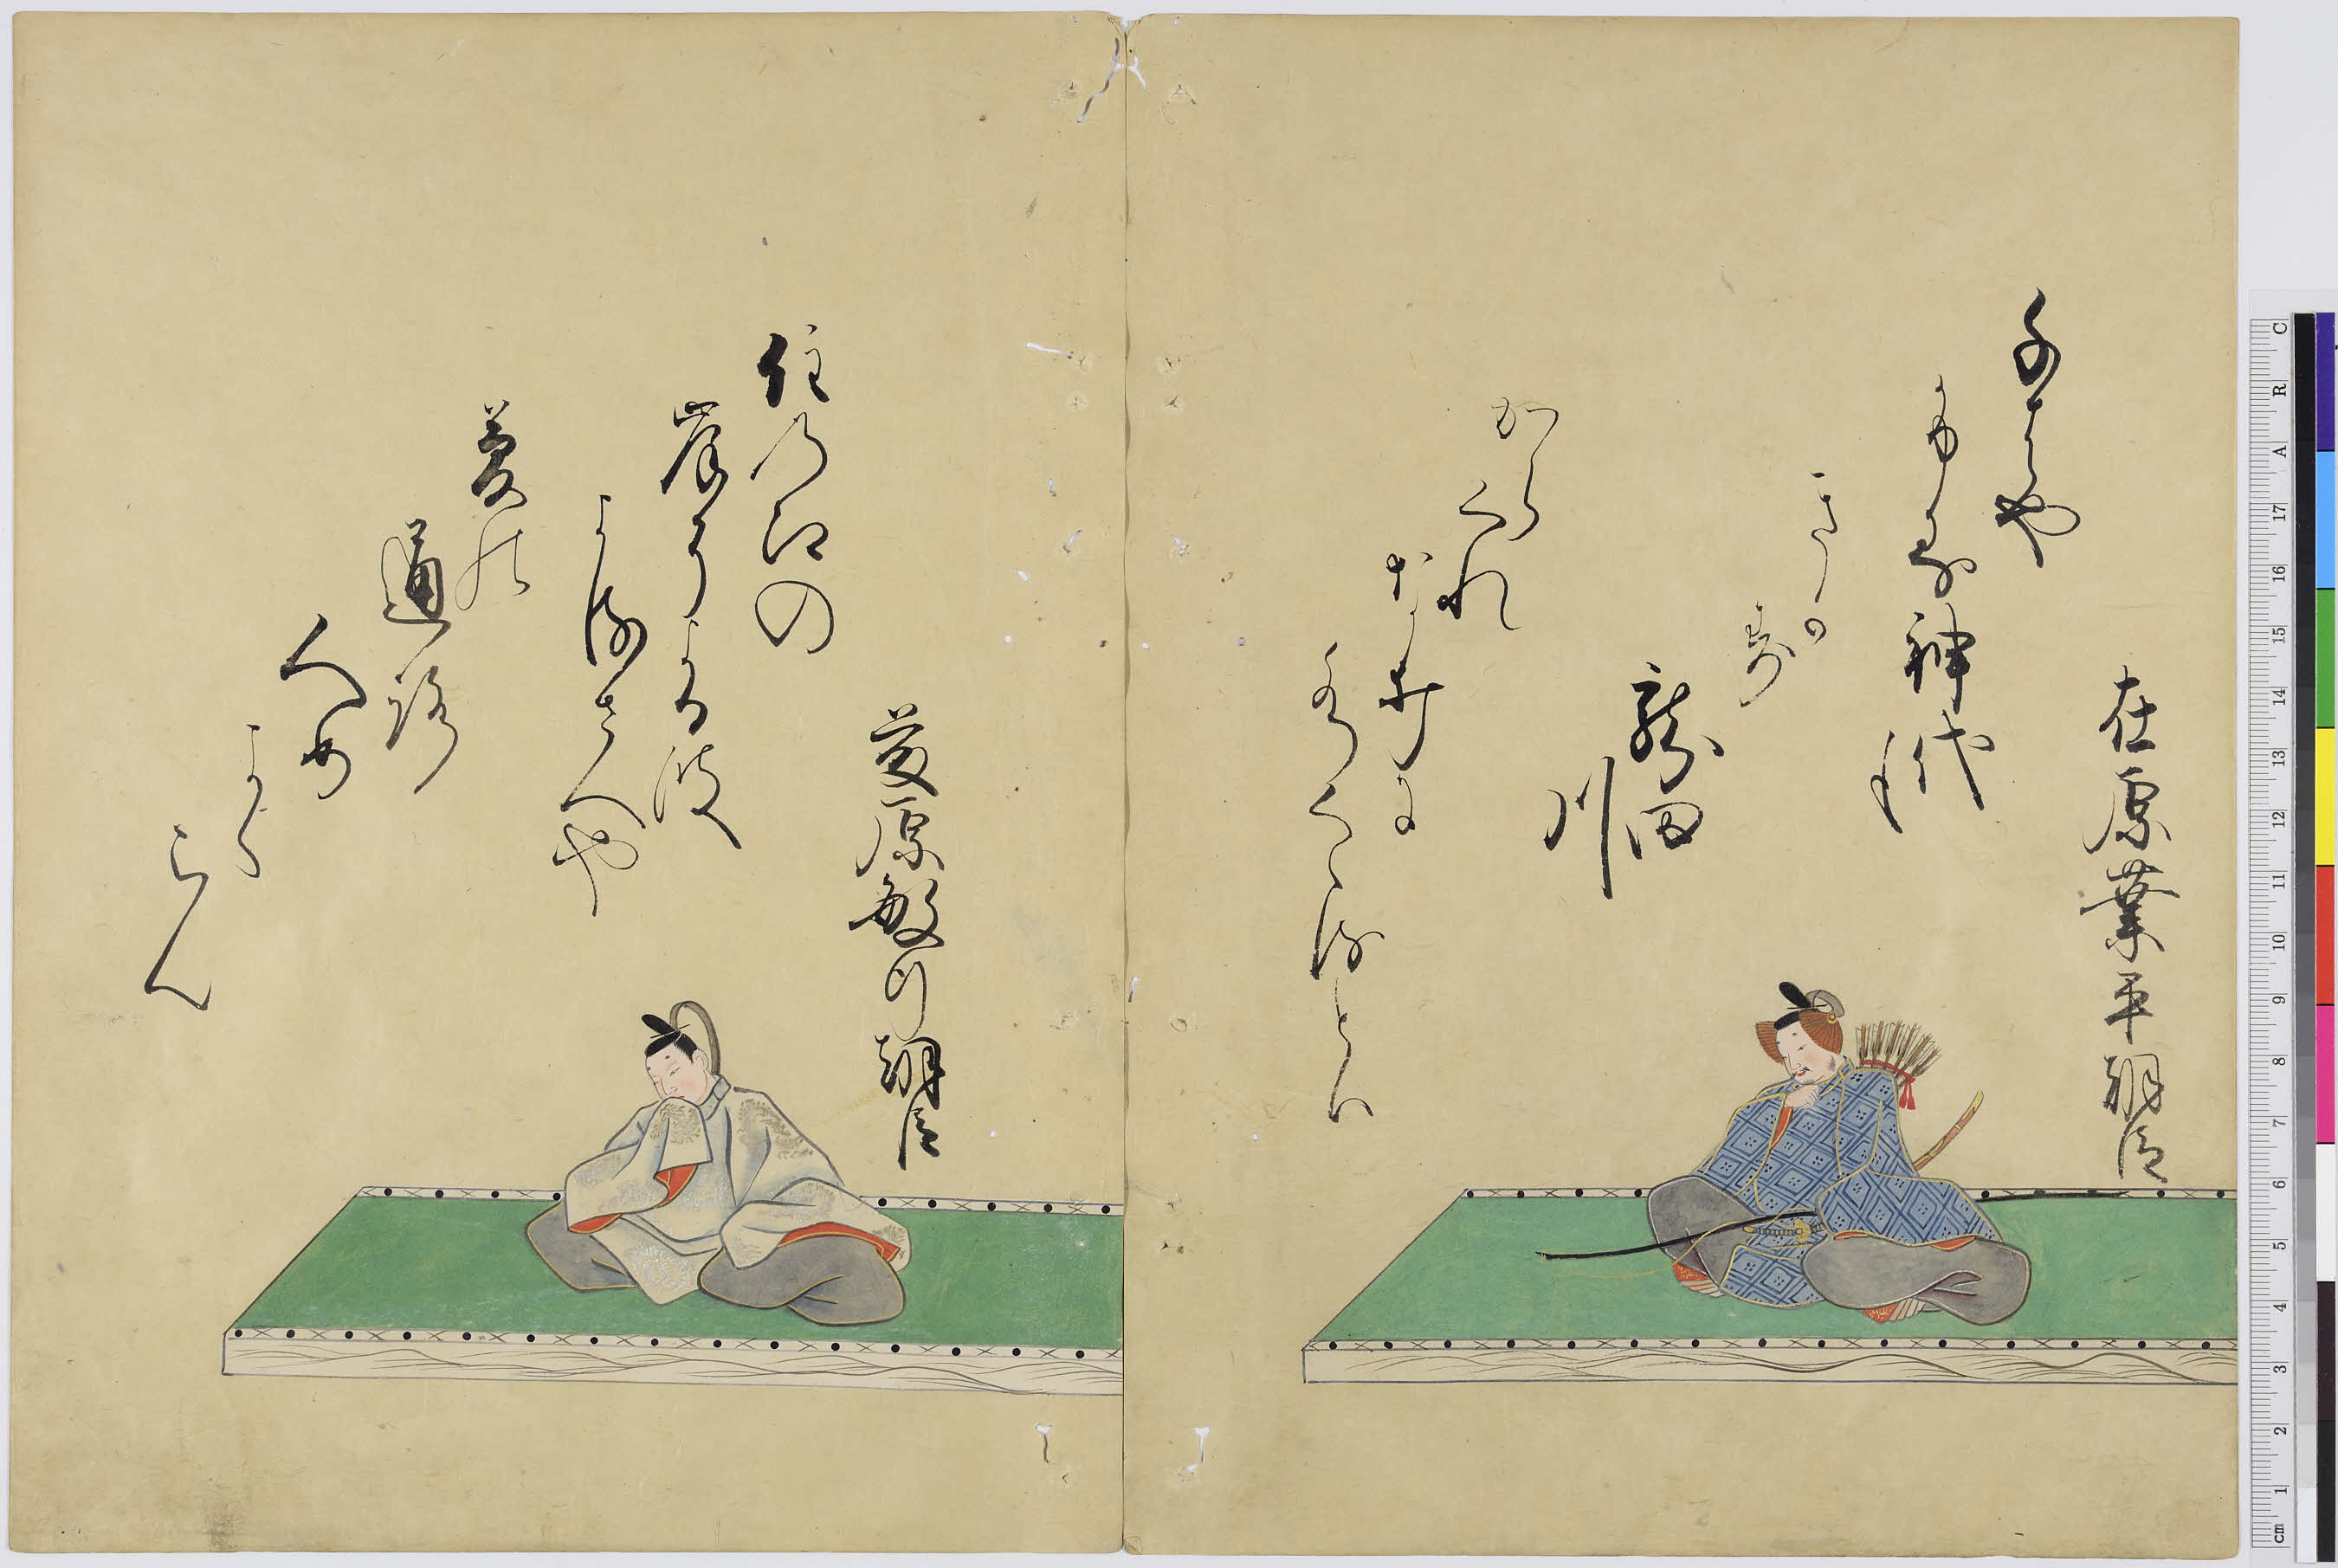 在原業平朝臣
千はや
ふる神代
も
きかす
龍田
川
から
くれ
なゐに
水くゝるとは
藤原敏行朝臣
住乃江の
岸による波
よるさへや
夢の
通路
人め
よく
らん
cm 1 2 3 4 5 6 7 8 9 10 11 12 13 14 15 16 17 A R C